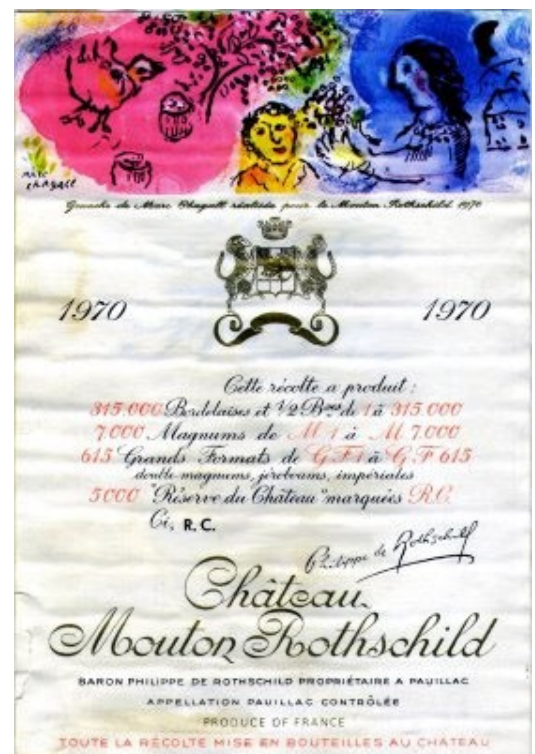 MARC
CHAGALL
Gouache de Marc Chagall réalisée pour le Mouton Rothschild 1970
1970 1970
Cette récolte a produit :
315.000 Bordelaises et 1/2 Bses de 1 à 315.000
7.000 Magnums de M 1 à M 7.000
615 Grands Formats de G.F 1 à G.F 615
double magnums, jéroboams, impériales
5000 "Réserve du Château" marquées R.C.
Ci, R.C.
Philippe de Rothschild
Château
Mouton Rothschild
BARON PHILIPPE DE ROTHSCHILD PROPRIÉTAIRE A PAUILLAC
APPELLATION PAUILLAC CONTRÔLÉE
PRODUCE OF FRANCE
TOUTE LA RÉCOLTE MISE EN BOUTEILLES AU CHÂTEAU